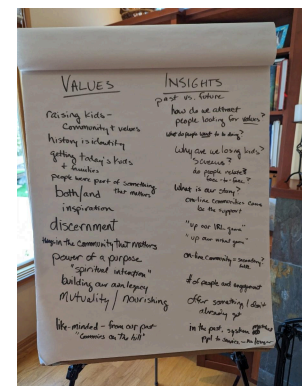 VALUES
raising kids -
community + values
history is identity
getting today's kids
+ families
people were part of something
that matters
both/and
inspiration
discernment
things in the community that matters
power of a purpose
"spiritual interaction"
building our own legacy
mutuality / nourishing
like-minded - from our past
"Commies on the hill"
INSIGHTS
past vs. future
how do we attract
people looking for values?
what do people want to be doing?
Why are we losing kids?
Scientists?
do people relate
face-to-face?
What is our story?
on-line communities came
for the support
"up our URL game"
"up our email game"
on-line community =
# of people and engagement
offer something I don't
already get
in the past, system
not to